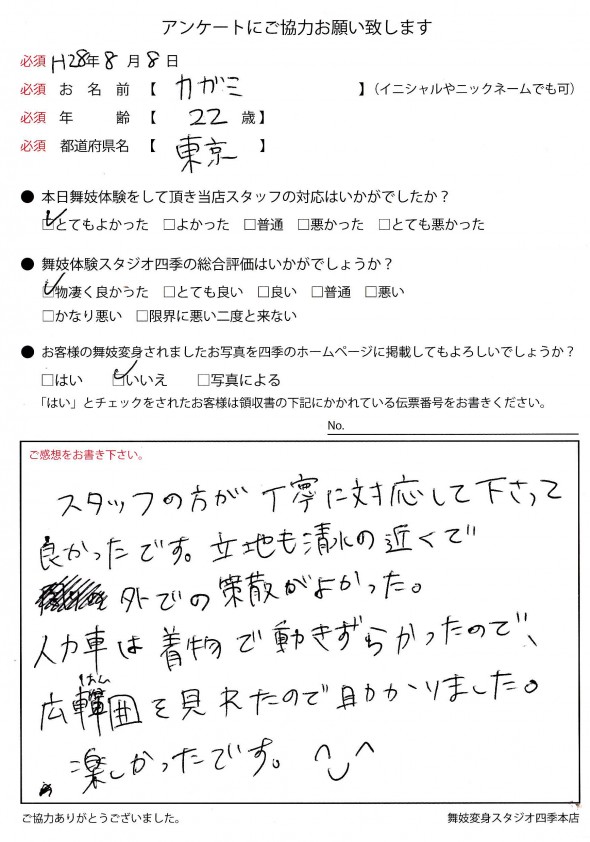 アンケートにご協力お願い致します
必須 H28年8月8日
必須 お名前 【 カガミ 】（イニシャルやニックネームでも可）
必須 年齢 【 22 歳】
必須 都道府県名 【 東京 】
● 本日舞妓体験をして頂き当店スタッフの対応はいかがでしたか？
☑とてもよかった □よかった □普通 □悪かった □とても悪かった
● 舞妓体験スタジオ四季の総合評価はいかがでしょうか？
☑物凄く良かうた □とても良い □良い □普通 □悪い
□かなり悪い □限界に悪い二度と来ない
● お客様の舞妓変身されましたお写真を四季のホームページに掲載してもよろしいでしょうか？
□はい ☑いいえ □写真による
「はい」とチェックをされたお客様は領収書の下記にかかれている伝票番号をお書きください。
No.
ご感想をお書き下さい。
スタッフの方が丁寧に対応して下さって
良かったです。立地も清水の近くで
外での策散がよかった。
人力車は着物で動きずらかったので、
はん
広範囲を見れたので助かりました。
楽しかったです。
ご協力ありがとうございました。
舞妓変身スタジオ四季本店